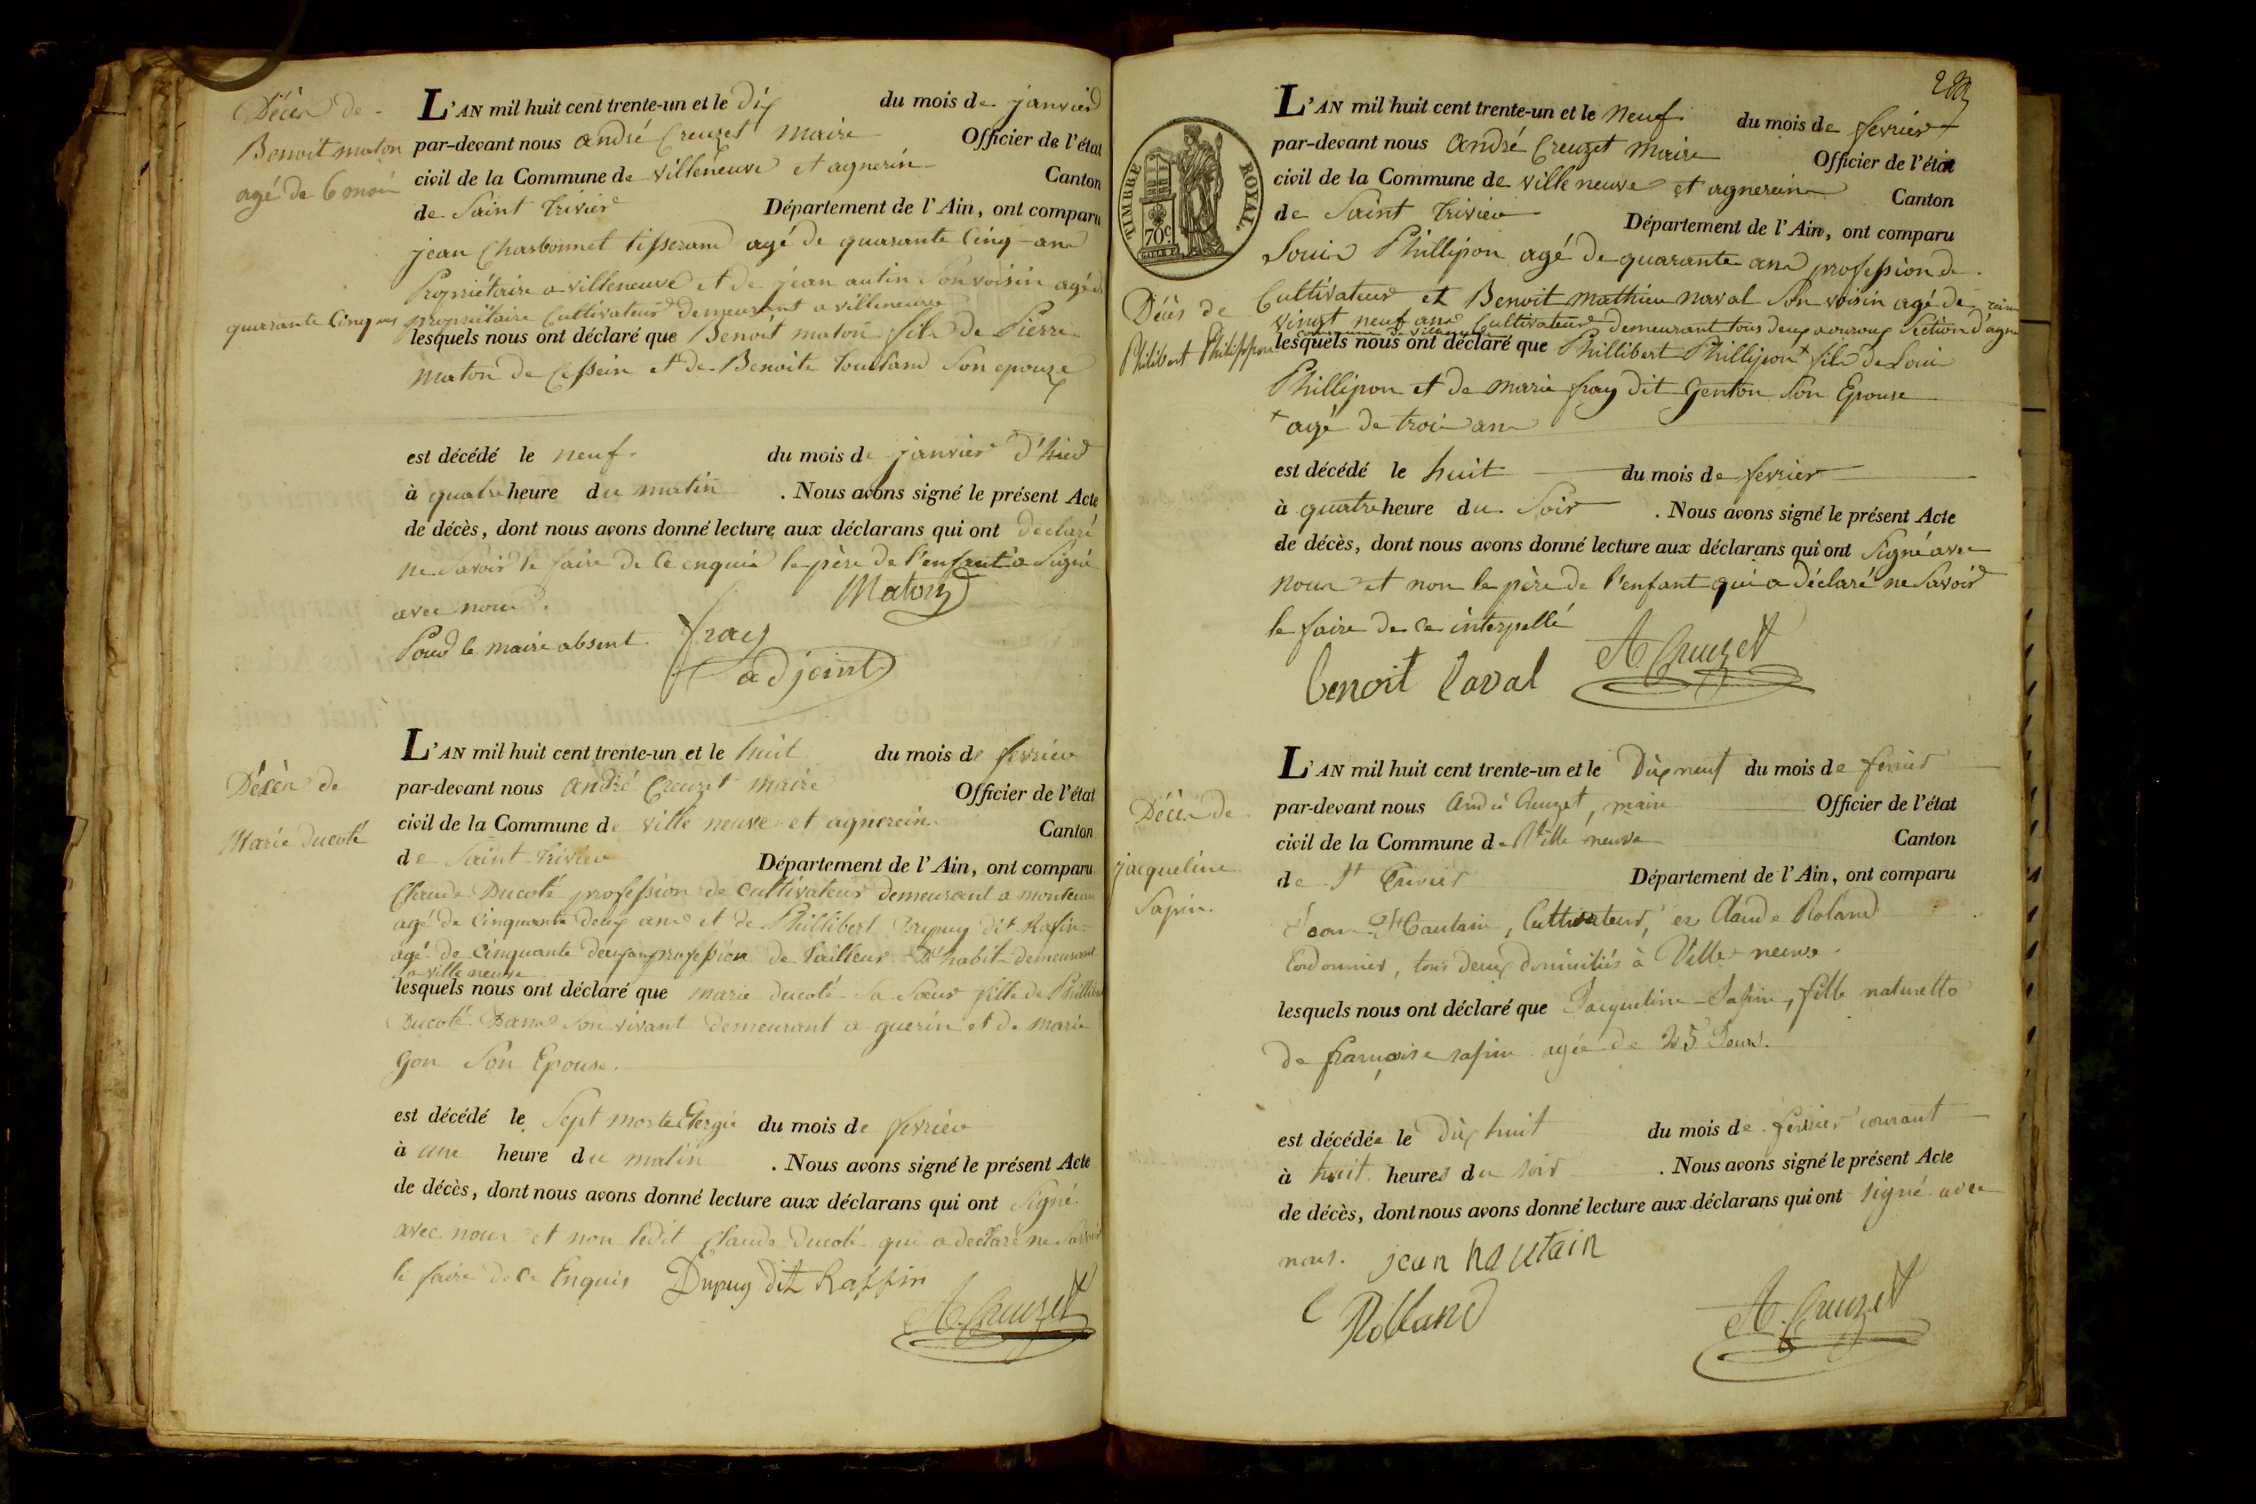 Décès de
Benoit maton
agé de 6 mois
L'AN mil huit cent trente-un et le dix du mois de janvier
par-devant nous andré Creuzet maire Officier de l'état
civil de la Commune de villeneuve et agnerin Canton
de Saint trivier Département de l'Ain, ont comparu
jean Charbonnet tisserand agé de quarante Cinq ans
Propriétaire a villeneuve et de jean autin Son voisin agé de
quarante Cinq ans propriétaire Cultivateur demeurant a villeneuve
lesquels nous ont déclaré que Benoit maton fils de Pierre
maton de et de Benoite Son epouze
est décédé le neuf du mois de janvier d'hier
à quatre heure du matin . Nous avons signé le présent Acte
de décès, dont nous avons donné lecture aux déclarans qui ont declaré
ne Savoir le faire de Ce enquis le père de l'enfant a Signé
avec nous. Maton
Pour le maire absent fray
adjoint
Décès de
Marie Ducoté
L'AN mil huit cent trente-un et le huit du mois de fevrier
par-devant nous andré Creuzet maire Officier de l'état
civil de la Commune de ville neuve et agnerein Canton
de Saint trivier Département de l'Ain, ont comparu
Claude Ducoté profession de cultivateur demeurant a
agé de cinquante deux ans et de Phillibert Dupuy dit Rafin
agé de cinquante deux ans profession de tailleur D'habit demeurant
a ville neuve
lesquels nous ont déclaré que marie ducoté sa Sœur fille de Phillibert
Ducoté Dans Son vivant demeurant a guerin et de marie
gon Son Epouse.
est décédé le Sept du mois de fevrier
à une heure du matin . Nous avons signé le présent Acte
de décès, dont nous avons donné lecture aux déclarans qui ont Signé
avec nous et non ledit Claude Ducoté qui a declaré ne Savoir
le faire de ce Enquis Dupuy dit Raffin
A. Creuzet
TIMBRE ROYAL
70 c.
Décès de
Philibert Philippon
L'AN mil huit cent trente-un et le neuf du mois de fevrier
par-devant nous andré Creuzet maire Officier de l'état
civil de la Commune de ville neuve et agnerein Canton
de Saint trivier Département de l'Ain, ont comparu
Louis Phillipon agé de quarante ans profession de
Cultivateur et Benoit mathieu naval Son voisin agé de
vingt neuf ans Cultivateur demeurant tous deux Section d'agnerein
lesquels nous ont déclaré que Phillibert Phillipon + fils de Louis
Phillipon et de marie fray dit Genton Son Epouse
+ agé de trois ans
est décédé le huit du mois de fevrier
à quatre heure du Soir . Nous avons signé le présent Acte
de décès, dont nous avons donné lecture aux déclarans qui ont Signé avec
nous et non le père de l'enfant qui a déclaré ne Savoir
le faire de ce interpellé
benoit laval A Creuzet
Décès de
jacqueline
Sapin.
L'AN mil huit cent trente-un et le Dix neuf du mois de fevrier
par-devant nous André Creuzet, maire Officier de l'état
civil de la Commune de Ville neuve Canton
de St Trivier Département de l'Ain, ont comparu
Jean Hautain, Cultivateur, et Claude Roland
Cordonnier, tous deux domiciliés à Ville neuve.
lesquels nous ont déclaré que Jacqueline Sapin, fille naturelle
de françoise sapin agée de 25 Jours.
est décédée le dix huit du mois de fevrier courant
à huit heures du soir . Nous avons signé le présent Acte
de décès, dont nous avons donné lecture aux déclarans qui ont signé avec
nous. jean hautain
C Rolland A. Creuzet